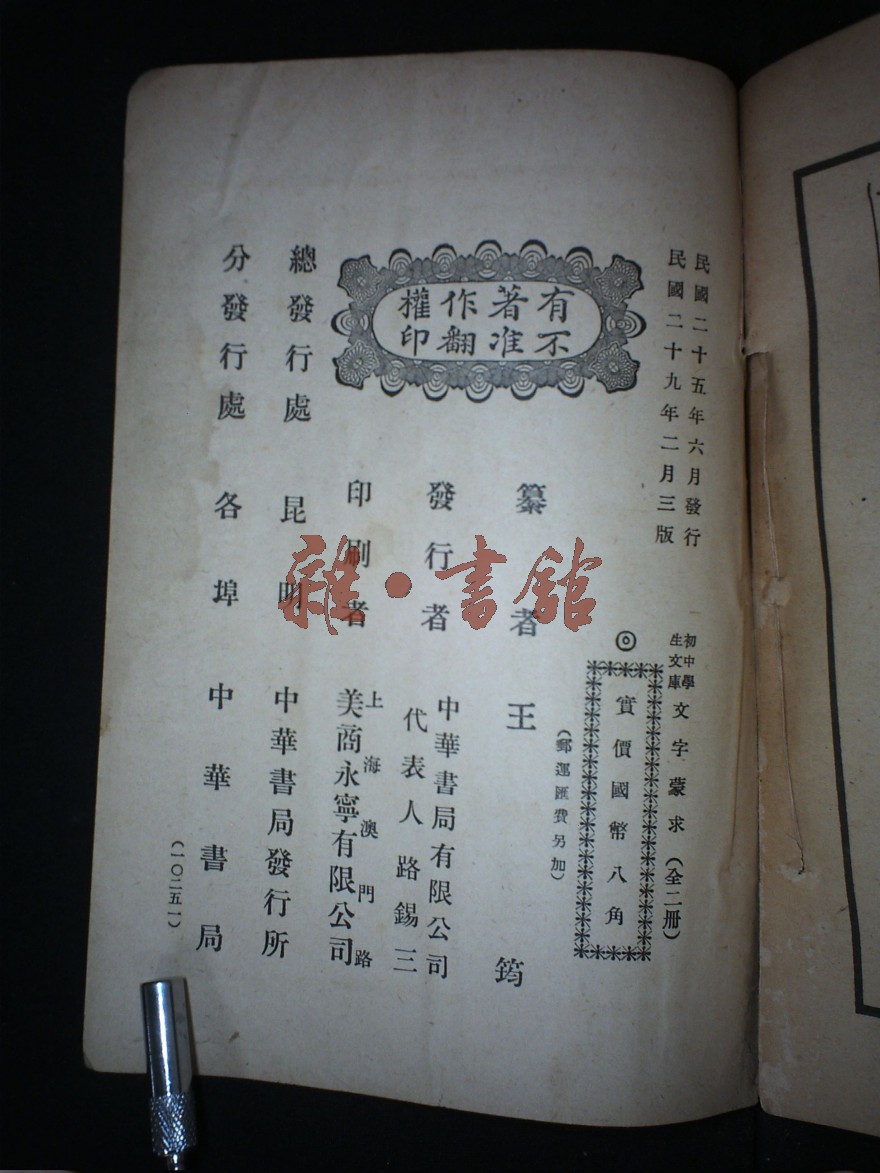 民國二十五年六月發行
民國二十九年二月三版
初中學
生文庫
文字蒙求（全二册）
◎
實價國幣八角
（郵運匯費另加）
有著作權
不准翻印
纂者 王筠
發行者 中華書局有限公司
代表人路錫三
印刷者 上海澳門路
美商永寧有限公司
總發行處 昆明 中華書局發行所
分發行處 各埠 中華書局
（一〇二五一）
雜·書館